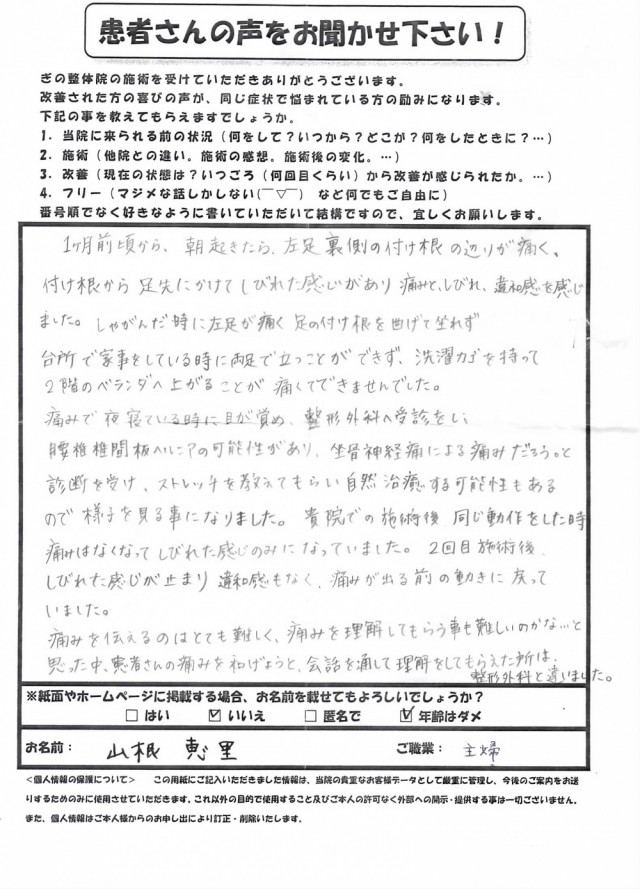 患者さんの声をお聞かせ下さい！
ぎの整体院の施術を受けていただきありがとうございます。
改善された方の喜びの声が、同じ症状で悩まれている方の励みになります。
下記の事を教えてもらえますでしょうか。
1．当院に来られる前の状況（何をして？いつから？どこが？何をしたときに？…）
2．施術（他院との違い。施術の感想。施術後の変化。…）
3．改善（現在の状態は？いつごろ（何回目くらい）から改善が感じられたか。…）
4．フリー（マジメな話しかしない(￣▽￣)　など何でもご自由に）
番号順でなく好きなように書いていただいて結構ですので、宜しくお願いします。
1ヶ月前頃から、朝起きたら、左足裏側の付け根の辺りが痛く、
付け根から足先にかけてしびれた感じがあり痛みと、しびれ、違和感を感じ
ました。しゃがんだ時に左足が痛く足の付け根を曲げて坐れず
台所で家事をしている時に両足で立つことができず、洗濯カゴを持って
2階のベランダへ上がることが痛くてできませんでした。
痛みで夜寝ている時に目が覚め、整形外科へ受診をし、
腰椎椎間板ヘルニアの可能性があり、坐骨神経痛による痛みだろう。と
診断を受け、ストレッチを教えてもらい自然治癒する可能性もある
ので様子を見る事になりました。貴院での施術後同じ動作をした時
痛みはなくなってしびれた感じのみになっていました。2回目施術後、
しびれた感じが止まり違和感もなく、痛みが出る前の動きに戻って
いました。
痛みを伝えるのはとても難しく、痛みを理解してもらう事も難しいのかな…と
思った中、患者さんの痛みを和げようと、会話を通して理解をしてもらえた所は、
整形外科と違いました。
※紙面やホームページに掲載する場合、お名前を載せてもよろしいでしょうか？
□はい　☑いいえ　□匿名で　☑年齢はダメ
お名前：山根　恵里　ご職業：主婦
＜個人情報の保護について＞　この用紙にご記入いただきました情報は、当院の貴重なお客様データとして厳重に管理し、今後のご案内をお送
りするためのみに使用させていただきます。これ以外の目的で使用すること及びご本人の許可なく外部への開示・提供する事は一切ございません。
また、個人情報はご本人様からのお申し出により訂正・削除いたします。